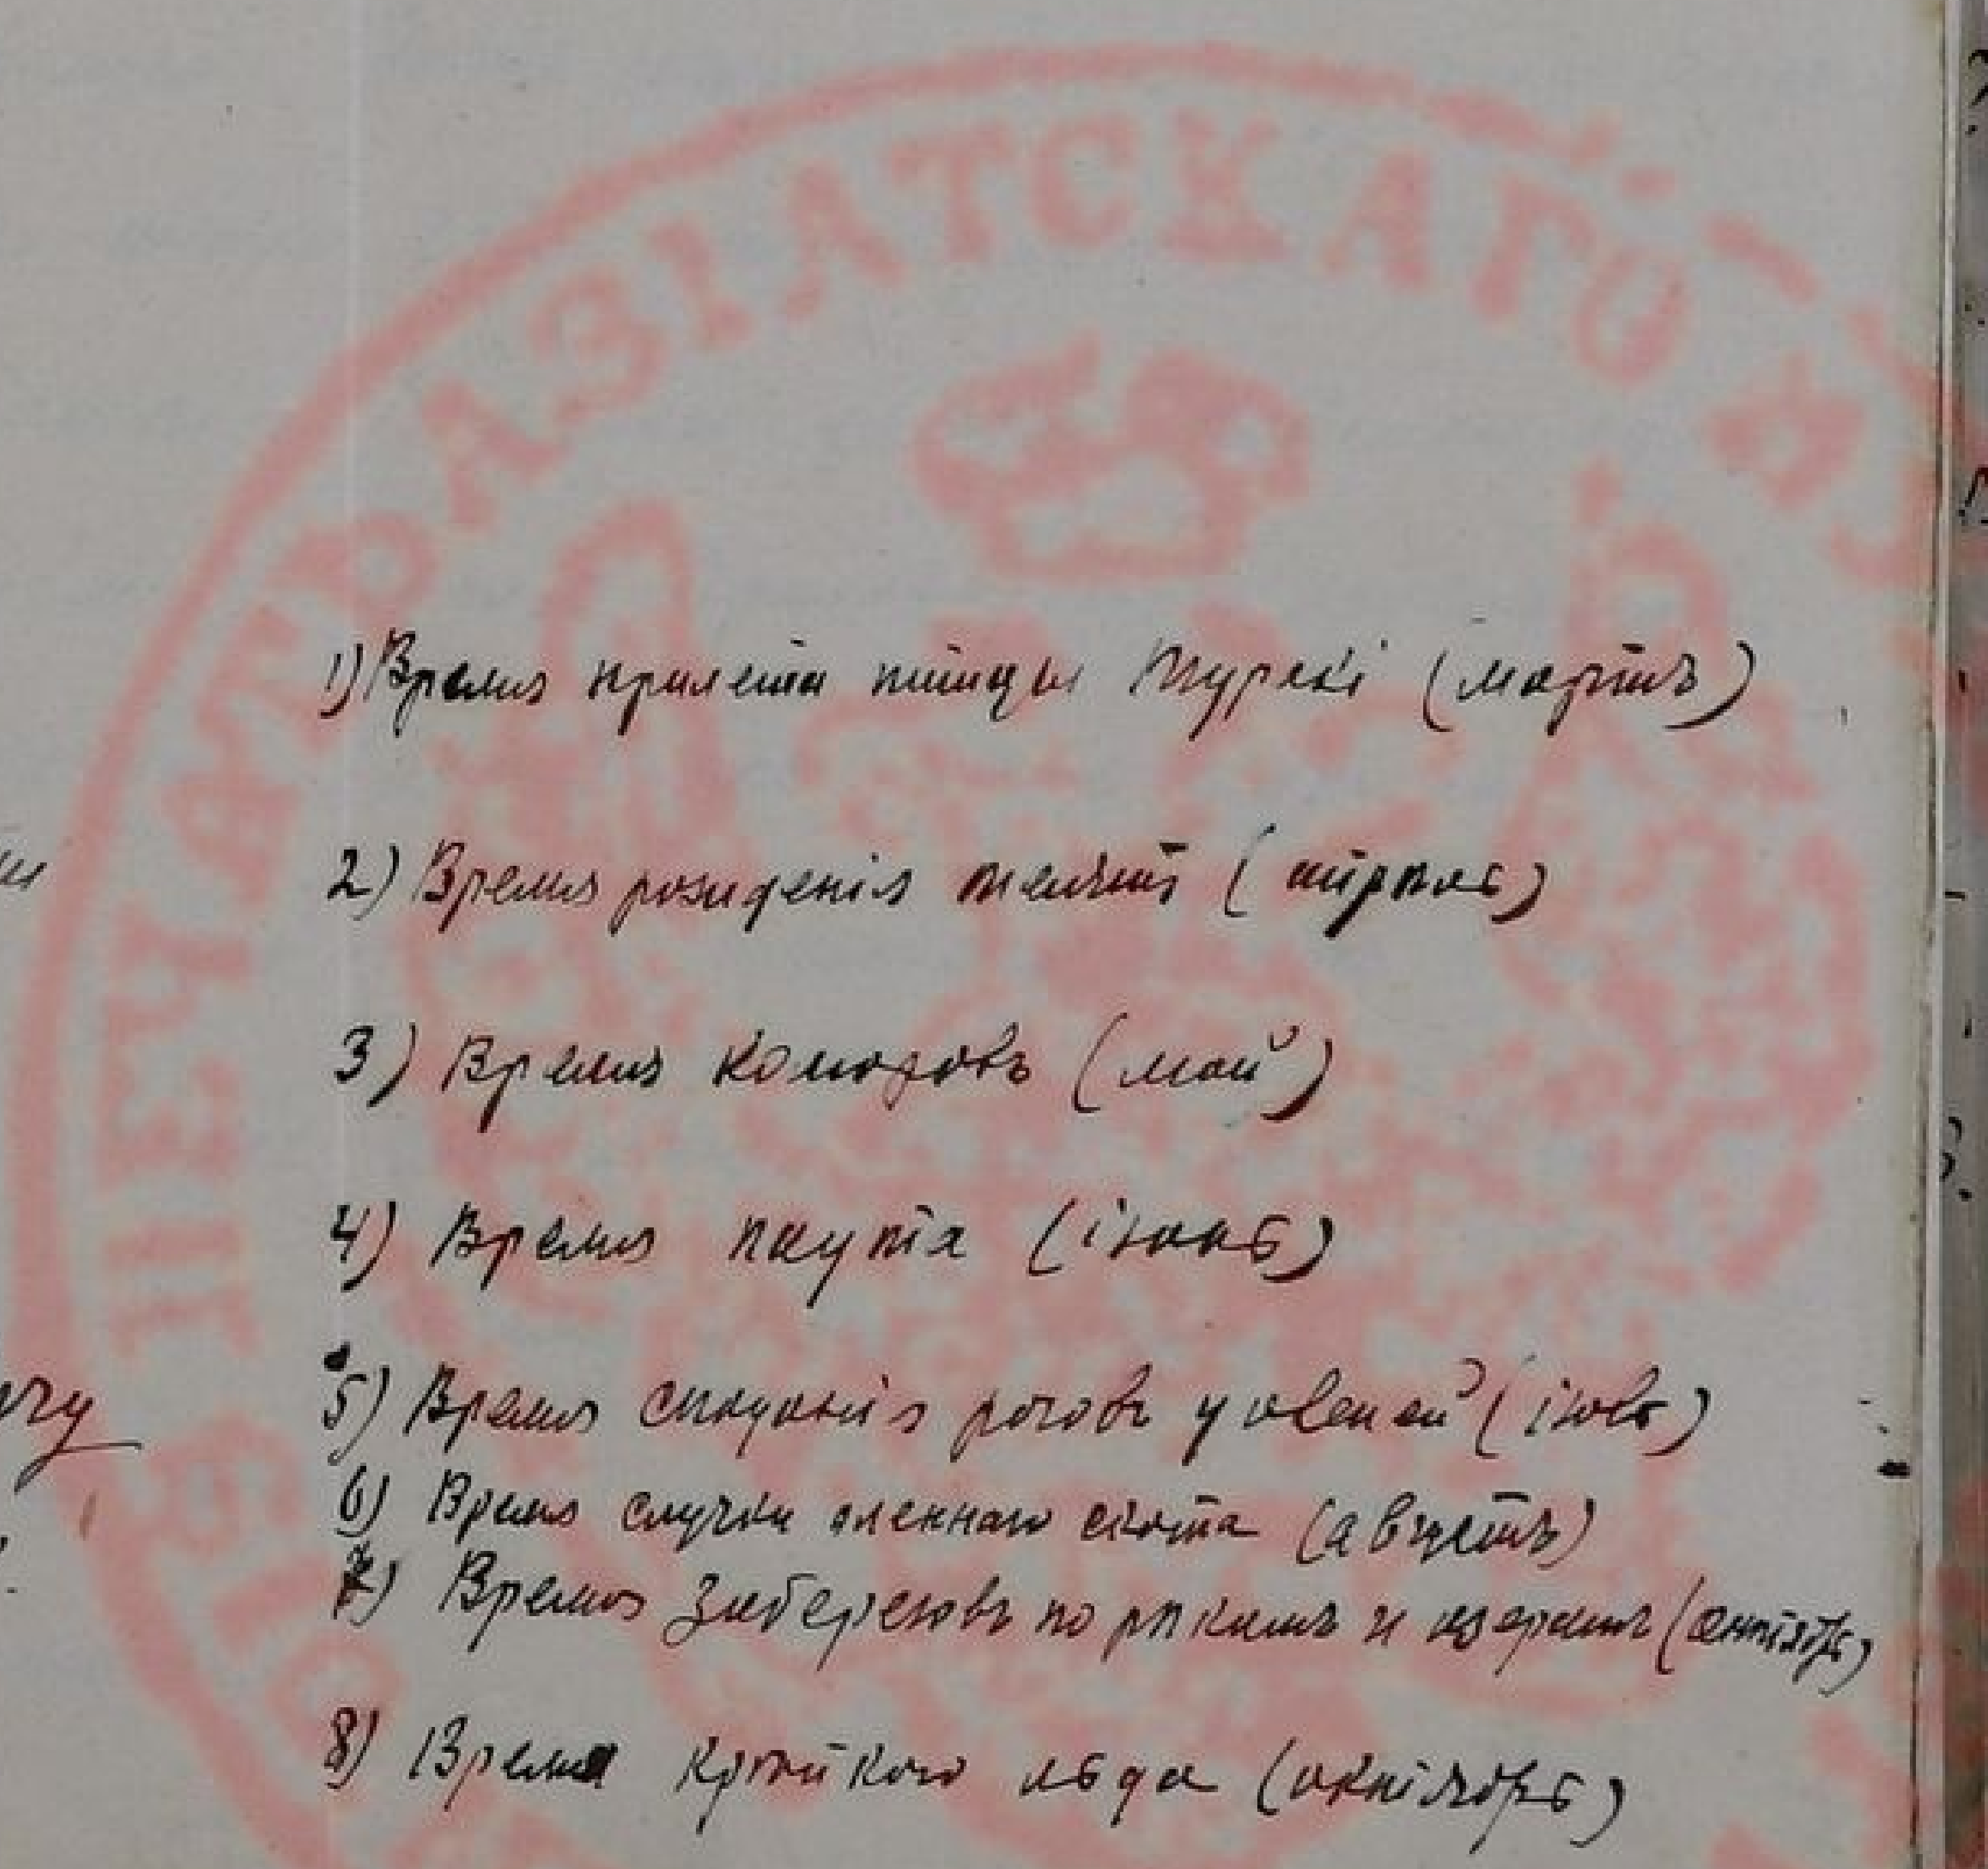 ПЕЧАТЬ АЗІАТСКАГО
1) Время прилета птицы Турекі (мартъ)
2) Время рожденія телятъ (апрѣль)
3) Время комаровъ (май)
4) Время паута (іюнь)
5) Время спаданія роговъ у оленей (іюль)
6) Время случки оленнаго скота (августъ)
7) Время забереговъ по рѣкамъ и озерамъ (сентябрь)
8) Время крѣпкого льда (октябрь)